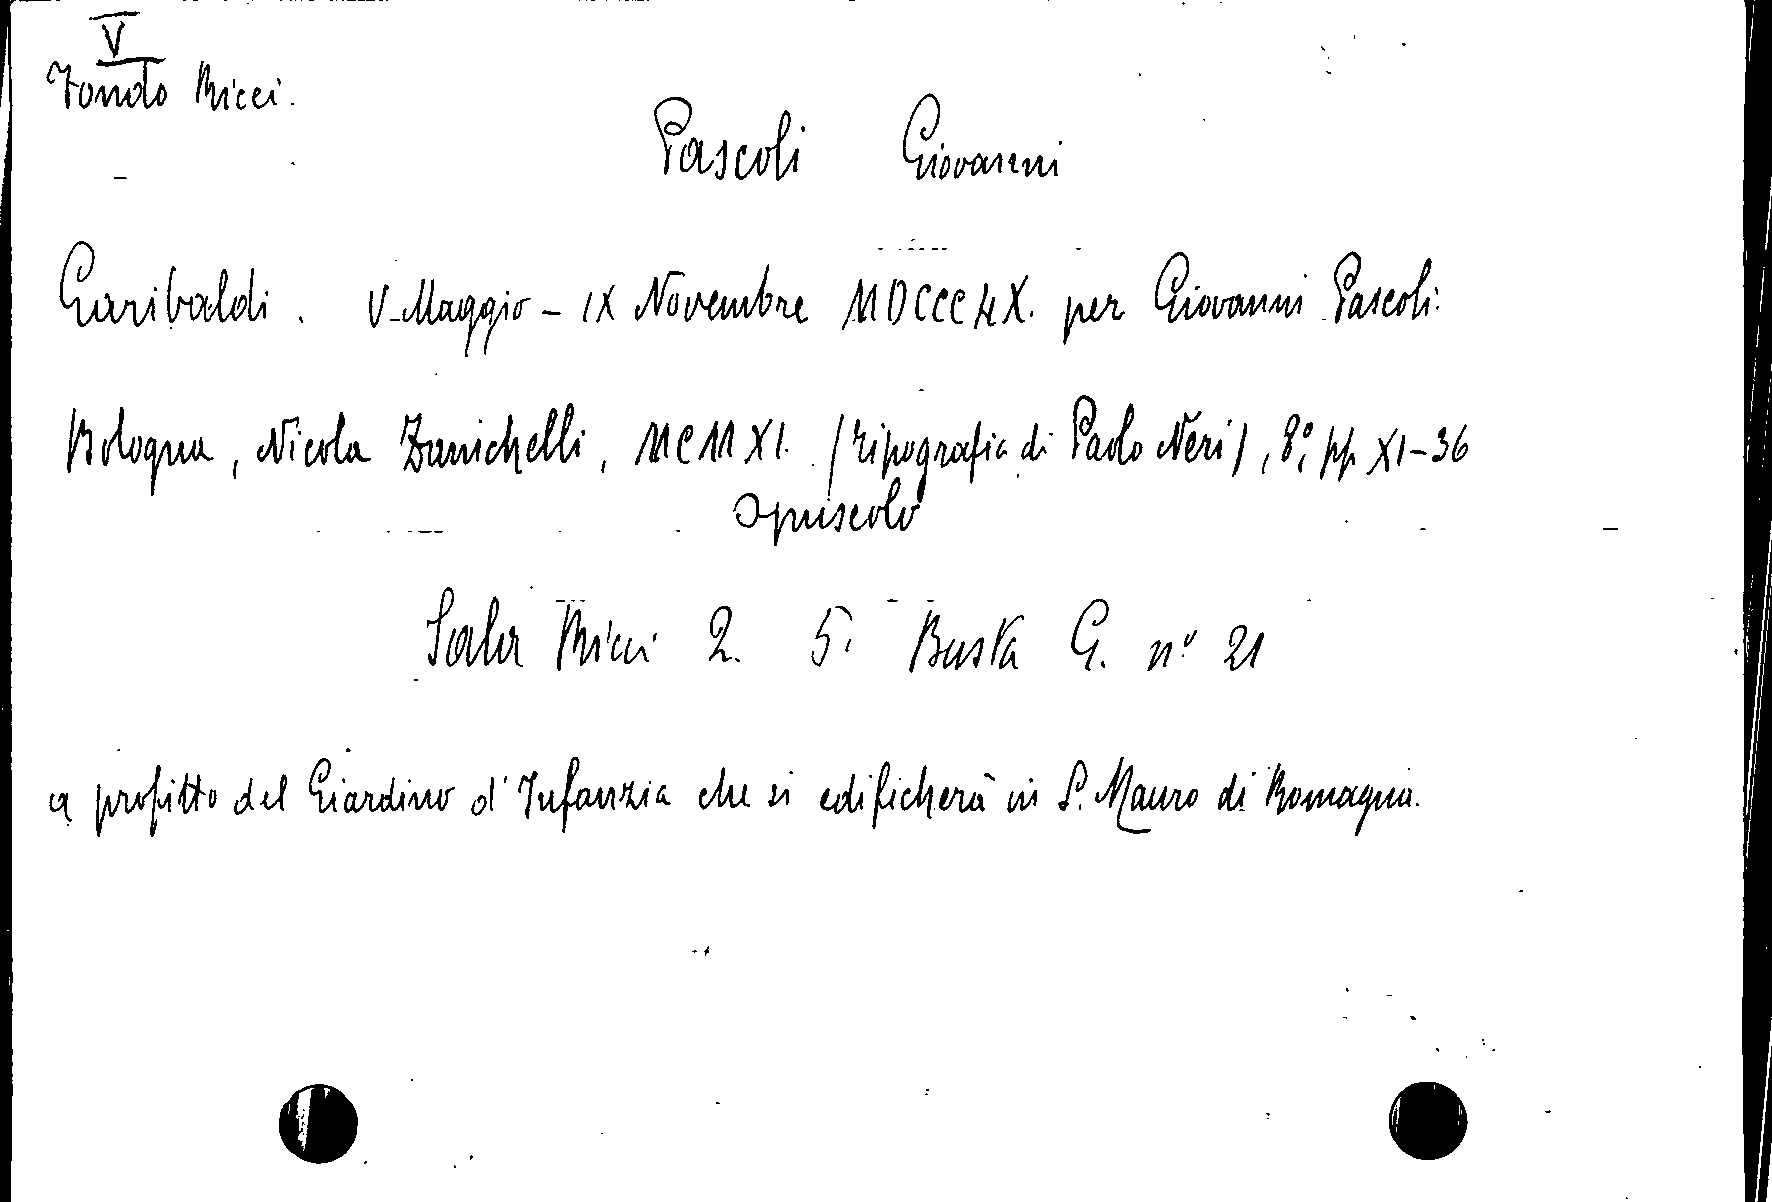 V
Fondo Ricci.
Pascoli Giovanni
Garibaldi. V Maggio - IX Novembre MDCCCLX. per Giovanni Pascoli.
Bologna, Nicola Zanichelli, MCMXI. (Tipografia di Paolo Neri), 8°, pp. XI-36
Opuscolo
Sala Ricci 2. 5. Busta G. n° 21
a profitto del Giardino d'Infanzia che si edificherà in S. Mauro di Romagna.